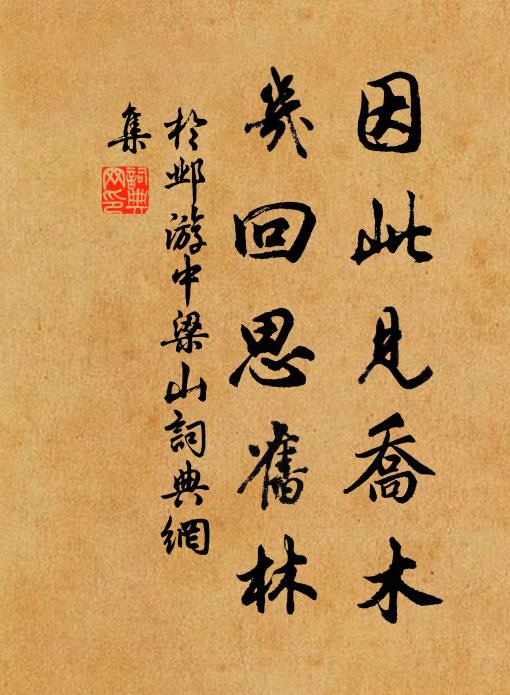 因此見喬木
幾回思舊林
於邺游中梁山詞典網
集
詞典網印